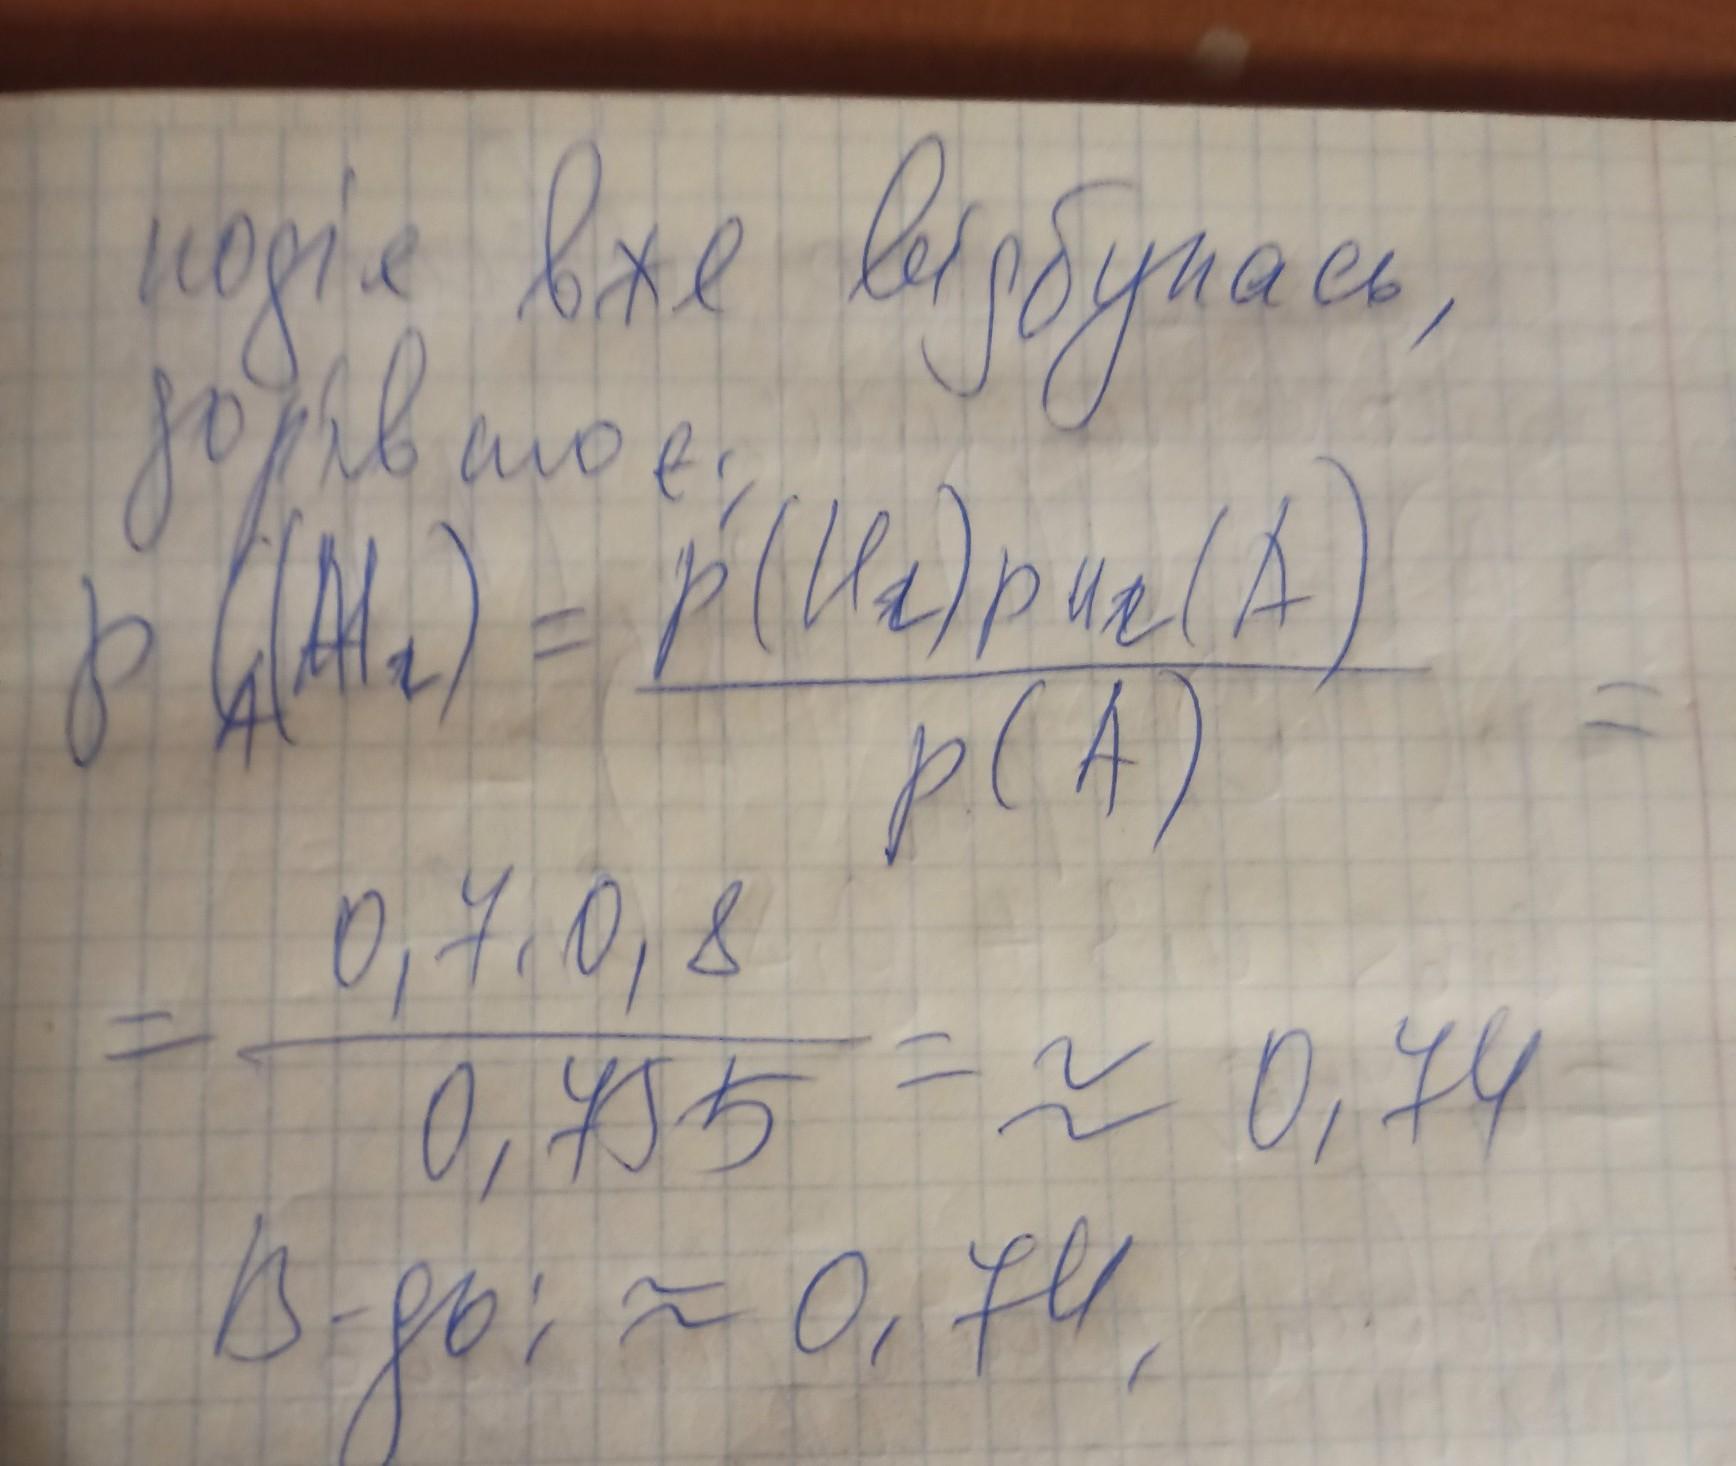 подія вже відбулась,
дорівнює:
p_A(H₂) = p(H₂)p_{H₂}(A) / p(A) =
= 0,7·0,8 / 0,755 = ≈ 0,74
В-дь: ≈ 0,74.